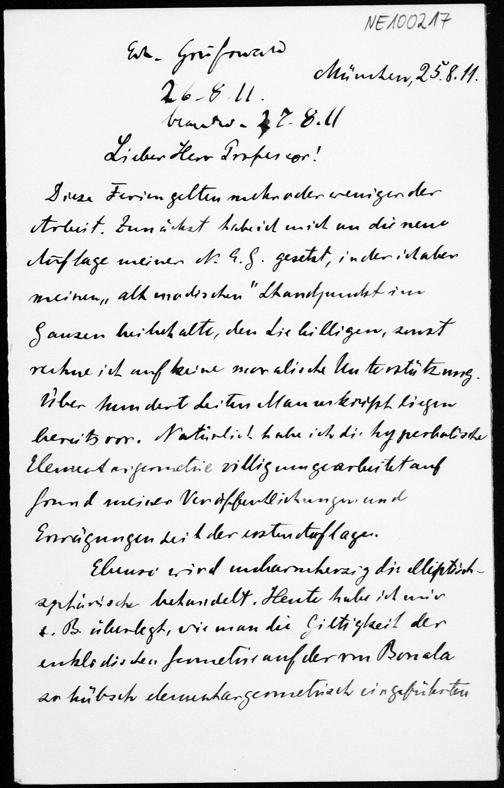 NE100217
Erh. Greifswald
München, 25.8.11.
26-8.11.
beantw. 27-8.11
Lieber Herr Professor!
Diese Ferien gelten mehr oder weniger der
Arbeit. Zunächst habe ich mich an die neue
Auflage meiner N. E. G. gesetzt, in der ich aber
meinen „altmodischen" Standpunkt im
Ganzen beibehalte, den Sie billigen, sonst
rechne ich auf keine moralische Unterstützung.
Über hundert Seiten Manuskript liegen
bereits vor. Natürlich habe ich die hyperbolische
Elementargeometrie völlig umgearbeitet auf
Grund meiner Veröffentlichungen und
Erwägungen seit der ersten Auflage.
Ebenso wird unbarmherzig die elliptisch-
sphärische behandelt. Heute habe ich mir
z. B. überlegt, wie man die Giltigkeit der
euklidischen Geometrie auf der von Bonola
so hübsch elementargeometrisch eingeführten